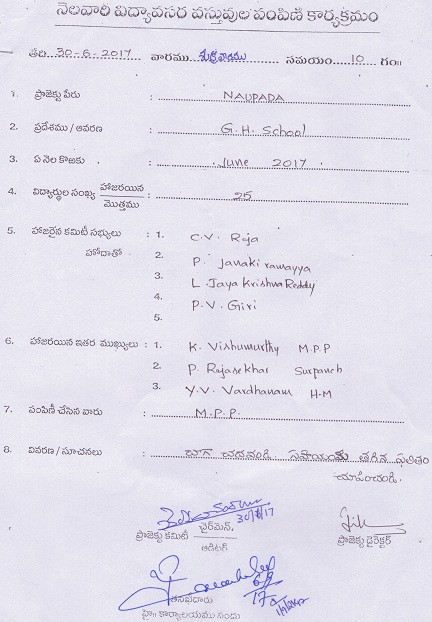 నెలవారి విద్యావసర వస్తువుల పంపిణి కార్యక్రమం
తేది 30-6-2017 వారము శుక్రవారము సమయం 10 గం॥
1. ప్రాజెక్టు పేరు : NAUPADA
2. ప్రదేశము / ఆవరణ : G.H. School
3. ఏ నెల కొఱకు : June 2017
4. విద్యార్థుల సంఖ్య హాజరయిన / మొత్తము : 25
5. హాజరైన కమిటీ సభ్యులు : 1. C.V. Raja
హోదాతో 2. P. Janaki ramayya
3. L. Jaya Krishna Reddy
4. P.V. Giri
5.
6. హాజరయిన ఇతర ముఖ్యులు : 1. K. Vishumurthy M.P.P
2. P. Rajasekhar Surpanch
3. Y.V. Vardhanam H.M
7. పంపిణీ చేసిన వారు : M.P.P.
8. వివరణ / సూచనలు : బాగా చదవండి సహాయంకు తగిన ఫలితం
చూపించండి.
30/6/17
ప్రాజెక్టు కమిటీ చైర్‌మెన్. ప్రాజెక్టు డైరెక్టర్
ఆడిటర్
తనిఖీదారు
హై॥ కార్యాలయము నందు